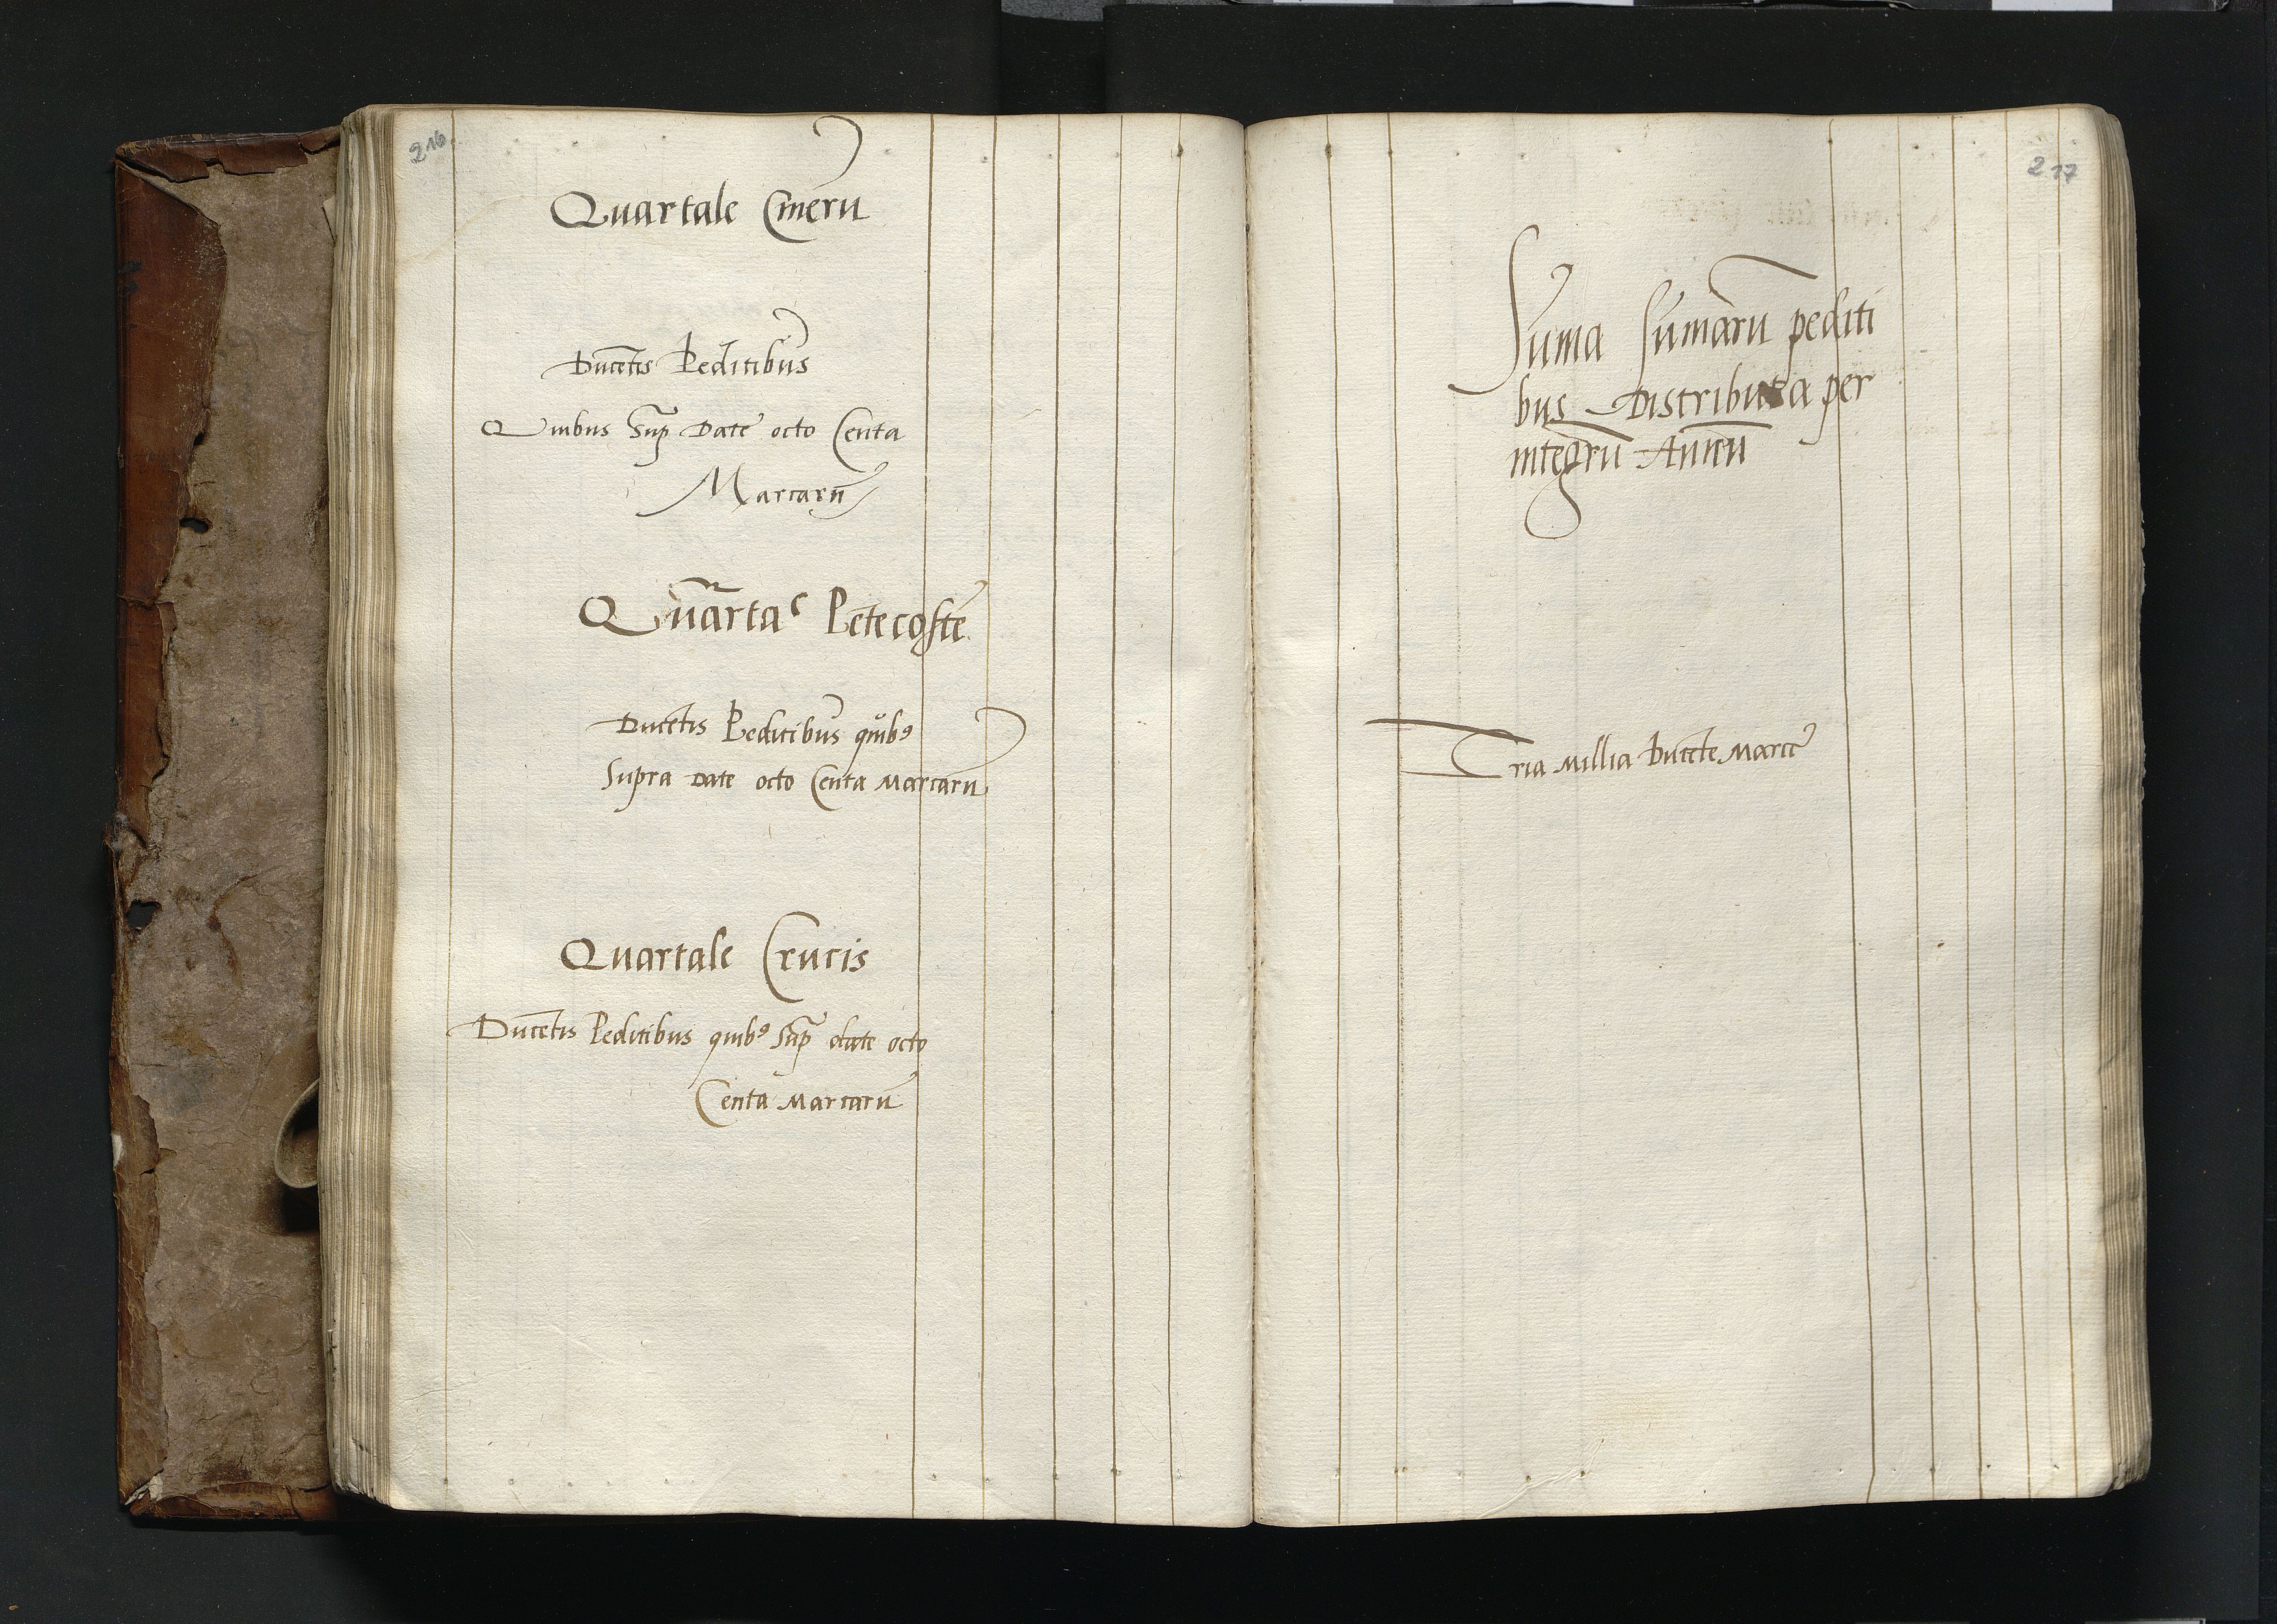 216
Quartale Cinerũ
Ducẽtis Peditibus
Quibus Sup̃ Date octo Centa
Marcarũ
Quarta͛ Pẽtecoste
Ducẽtis Peditibus quibꝰ
Supra Date octo Centa Marcarũ
Quartale Crucis
Ducẽtis Peditibus quibꝰ Sup̃ date octo
Centa Marcarũ
217
Suma Sumarũ pediti
bus Distributa per
integrũ Annũ
Tria Millia Ducẽte Marce